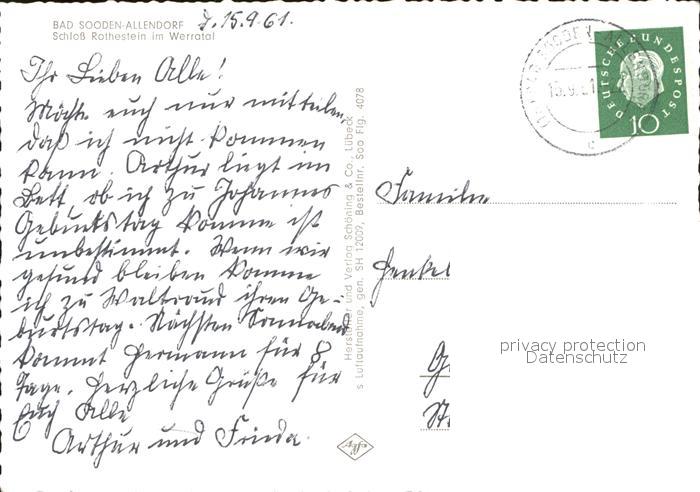 BAD SOODEN-ALLENDORF
Schloß Rothestein im Werratal
d. 15.9.61.
Ihr Lieben Alle!
Möchte euch nur mitteilen,
daß ich nicht kommen
kann. Arthur liegt im
Bett, ob ich zu Johannes
Geburtstag komme ist
unbestimmt. Wenn wir
gesund bleiben komme
ich zu Waltraud ihren Ge-
burtstag. Nächsten Sonnabend
kommt Hermann für 8
Tage. Herzliche Grüße für
Euch Alle
Arthur und Frieda.
Hersteller und Verlag Schöning & Co., Lübeck
s Luftaufnahme, gen. SH 12009, Bestellnr. Soo Flg. 4078
DEUTSCHE BUNDESPOST
10
15.9.61
c
Familie
Henkel
G
St
privacy protection
Datenschutz